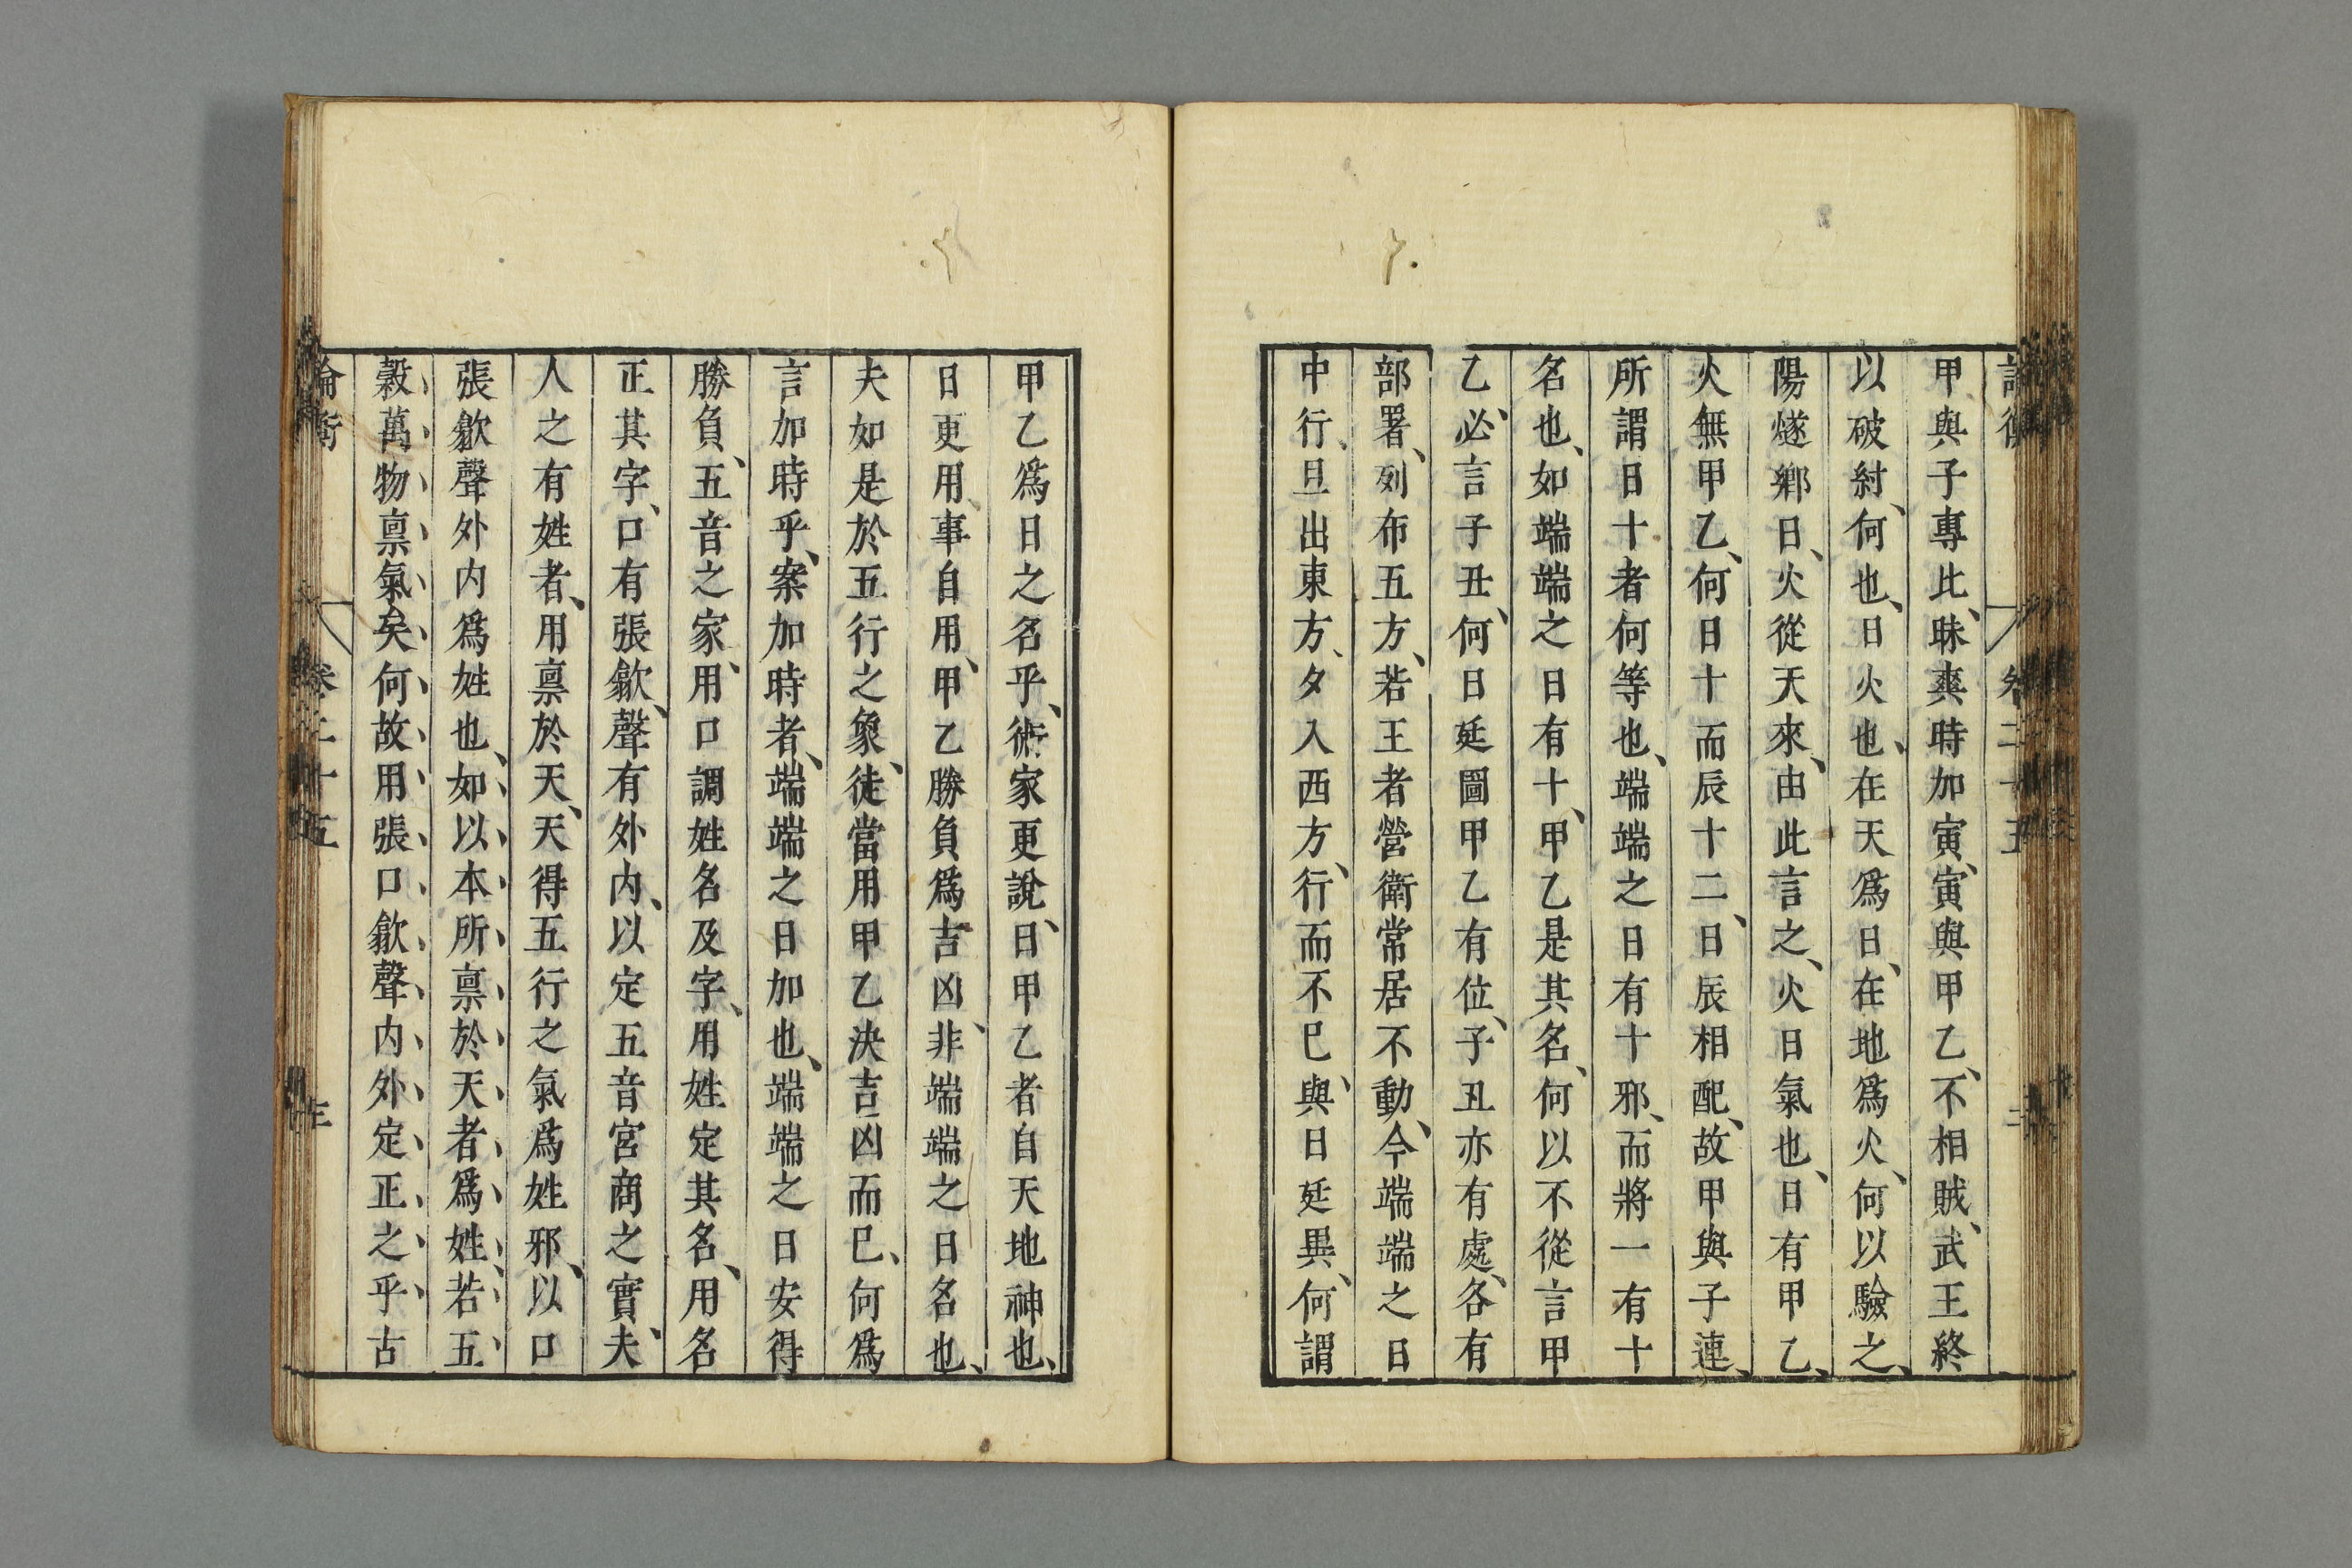 論衡 卷二十五 二
甲與子專比、昧爽時加寅、寅與甲乙、不相賊、武王終
以破紂、何也、日火也、在天爲日、在地爲火、何以驗之、
陽燧鄉日、火從天來、由此言之、火日氣也、日有甲乙、
火無甲乙、何日十而辰十二、日辰相配、故甲與子連、
所謂日十者何等也、端端之日有十邪、而將一有十
名也、如端端之日有十、甲乙是其名、何以不從言甲
乙、必言子丑、何日廷圖甲乙有位、子丑亦有處、各有
部署、列布五方、若王者營衛常居不動、今端端之日
中行、旦出東方、夕入西方、行而不已、與日廷異、何謂
甲乙爲日之名乎、術家更說、日甲乙者自天地神也、
日更用事自用、甲乙勝負爲吉凶、非端端之日名也、
夫如是於五行之象、徒當用甲乙決吉凶而已、何爲
言加時乎、案加時者、端端之日加也、端端之日安得
勝負、五音之家、用口調姓名及字、用姓定其名、用名
正其字、口有張歙、聲有外內、以定五音宮商之實、夫
人之有姓者、用禀於天、天得五行之氣爲姓邪、以口
張歙聲外内爲姓也、如以本所禀於天者爲姓、若五
穀萬物禀氣矣、何故用張口歙聲内外定正之乎、古
論衡 卷二十五 三